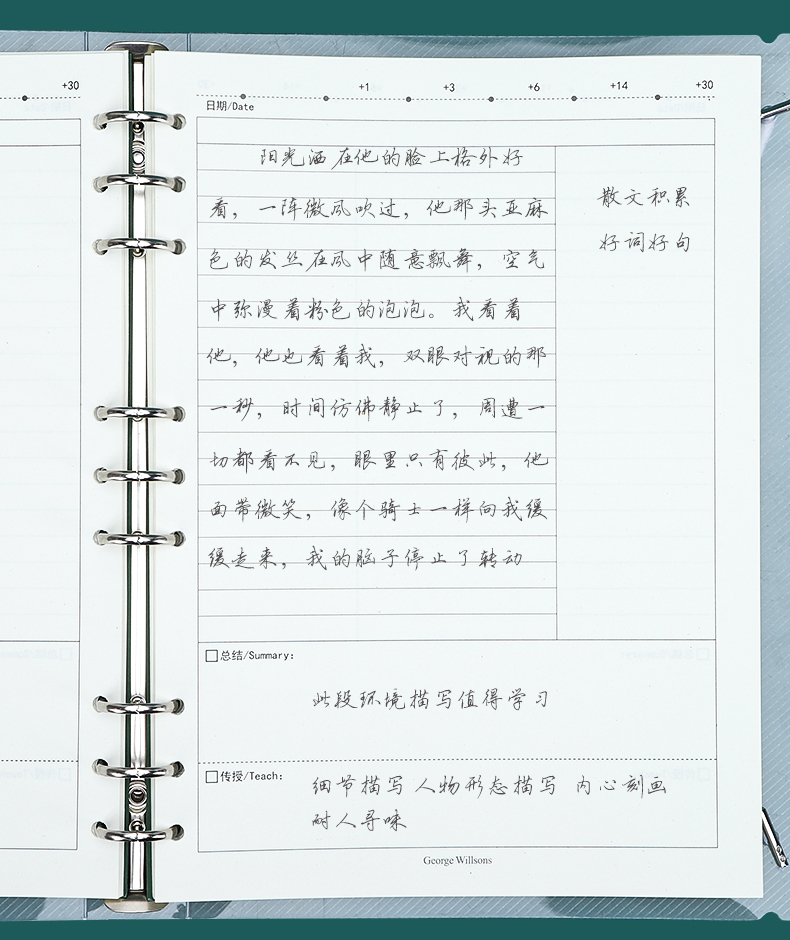 +30
+1 +3 +6 +14 +30
日期/Date
阳光洒在他的脸上格外好
看，一阵微风吹过，他那头亚麻
色的发丝在风中随意飘舞，空气
中弥漫着粉色的泡泡。我看着
他，他也看着我，双眼对视的那
一秒，时间仿佛静止了，周遭一
切都看不见，眼里只有彼此，他
面带微笑，像个骑士一样向我缓
缓走来，我的脑子停止了转动
散文积累
好词好句
总结/Summary:
此段环境描写值得学习
传授/Teach:
细节描写 人物形态描写 内心刻画
耐人寻味
George Willsons